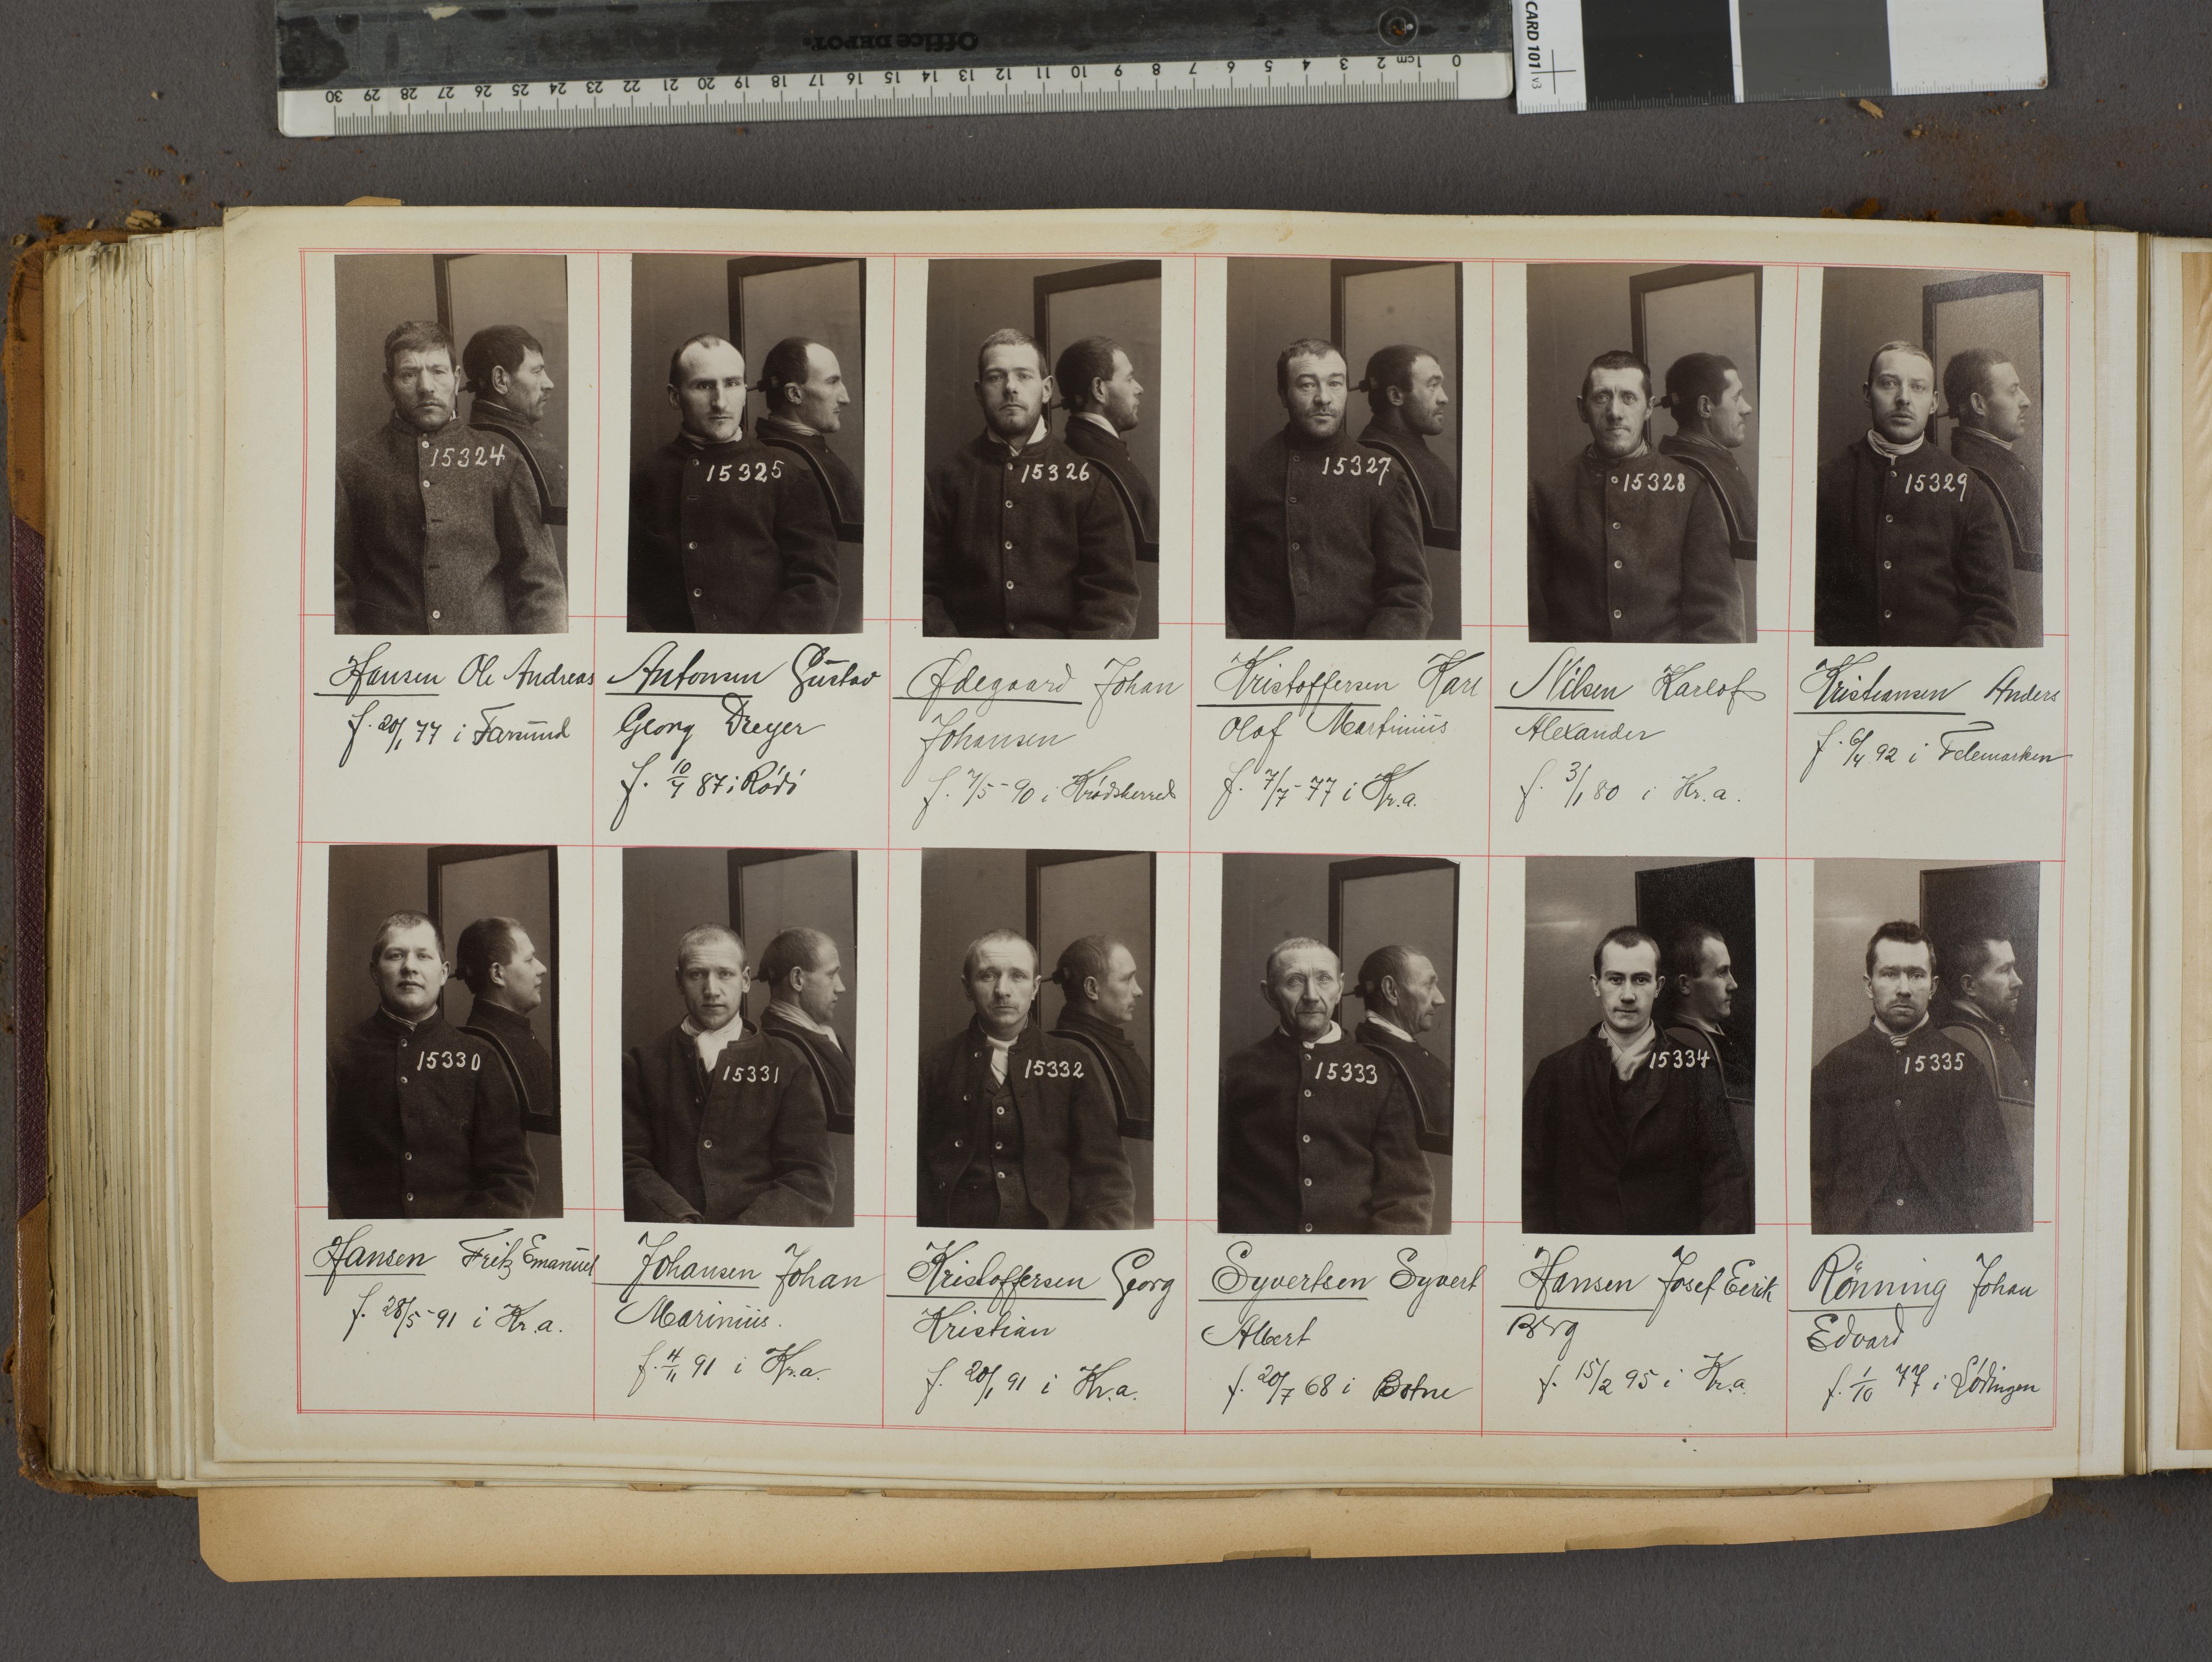 Office DEPOT.
30 29 28 27 26 25 24 23 22 21 20 19 18 17 16 15 14 13 12 11 10 9 8 7 6 5 4 3 2 1cm 0
CARD 101 v3
15324
15325
15326
15327
15328
15329
Hansen Ole Andreas
f. 20/1 77 i Farsund
Antonsen Gustav
Georg Dreyer
f. 10/7 87 i Rödö
Ødegaard Johan
Johansen
f. 7/5-90 i Krödsherred
Kristoffersen Karl
Olaf Martinius
f. 7/7-77 i Kr.a.
Nilsen Karlof
Alexander
f. 3/1 80 i Kr.a.
Kristiansen Anders
f. 6/4 92 i Telemarken
15330
15331
15332
15333
15334
15335
Hansen Fritz Emanuel
f. 28/5-91 i Kr.a.
Johansen Johan
Marinius.
f. 4/11 91 i Kr.a.
Kristoffersen Georg
Kristian
f. 20/1 91 i Kr.a.
Syvertsen Syvert
Albert
f. 20/7 68 i Botne
Hansen Josef Eerik
Berg
f. 15/2 95 i Kr.a
Rönning Johan
Edvard
f. 1/10 77 i Lödingen